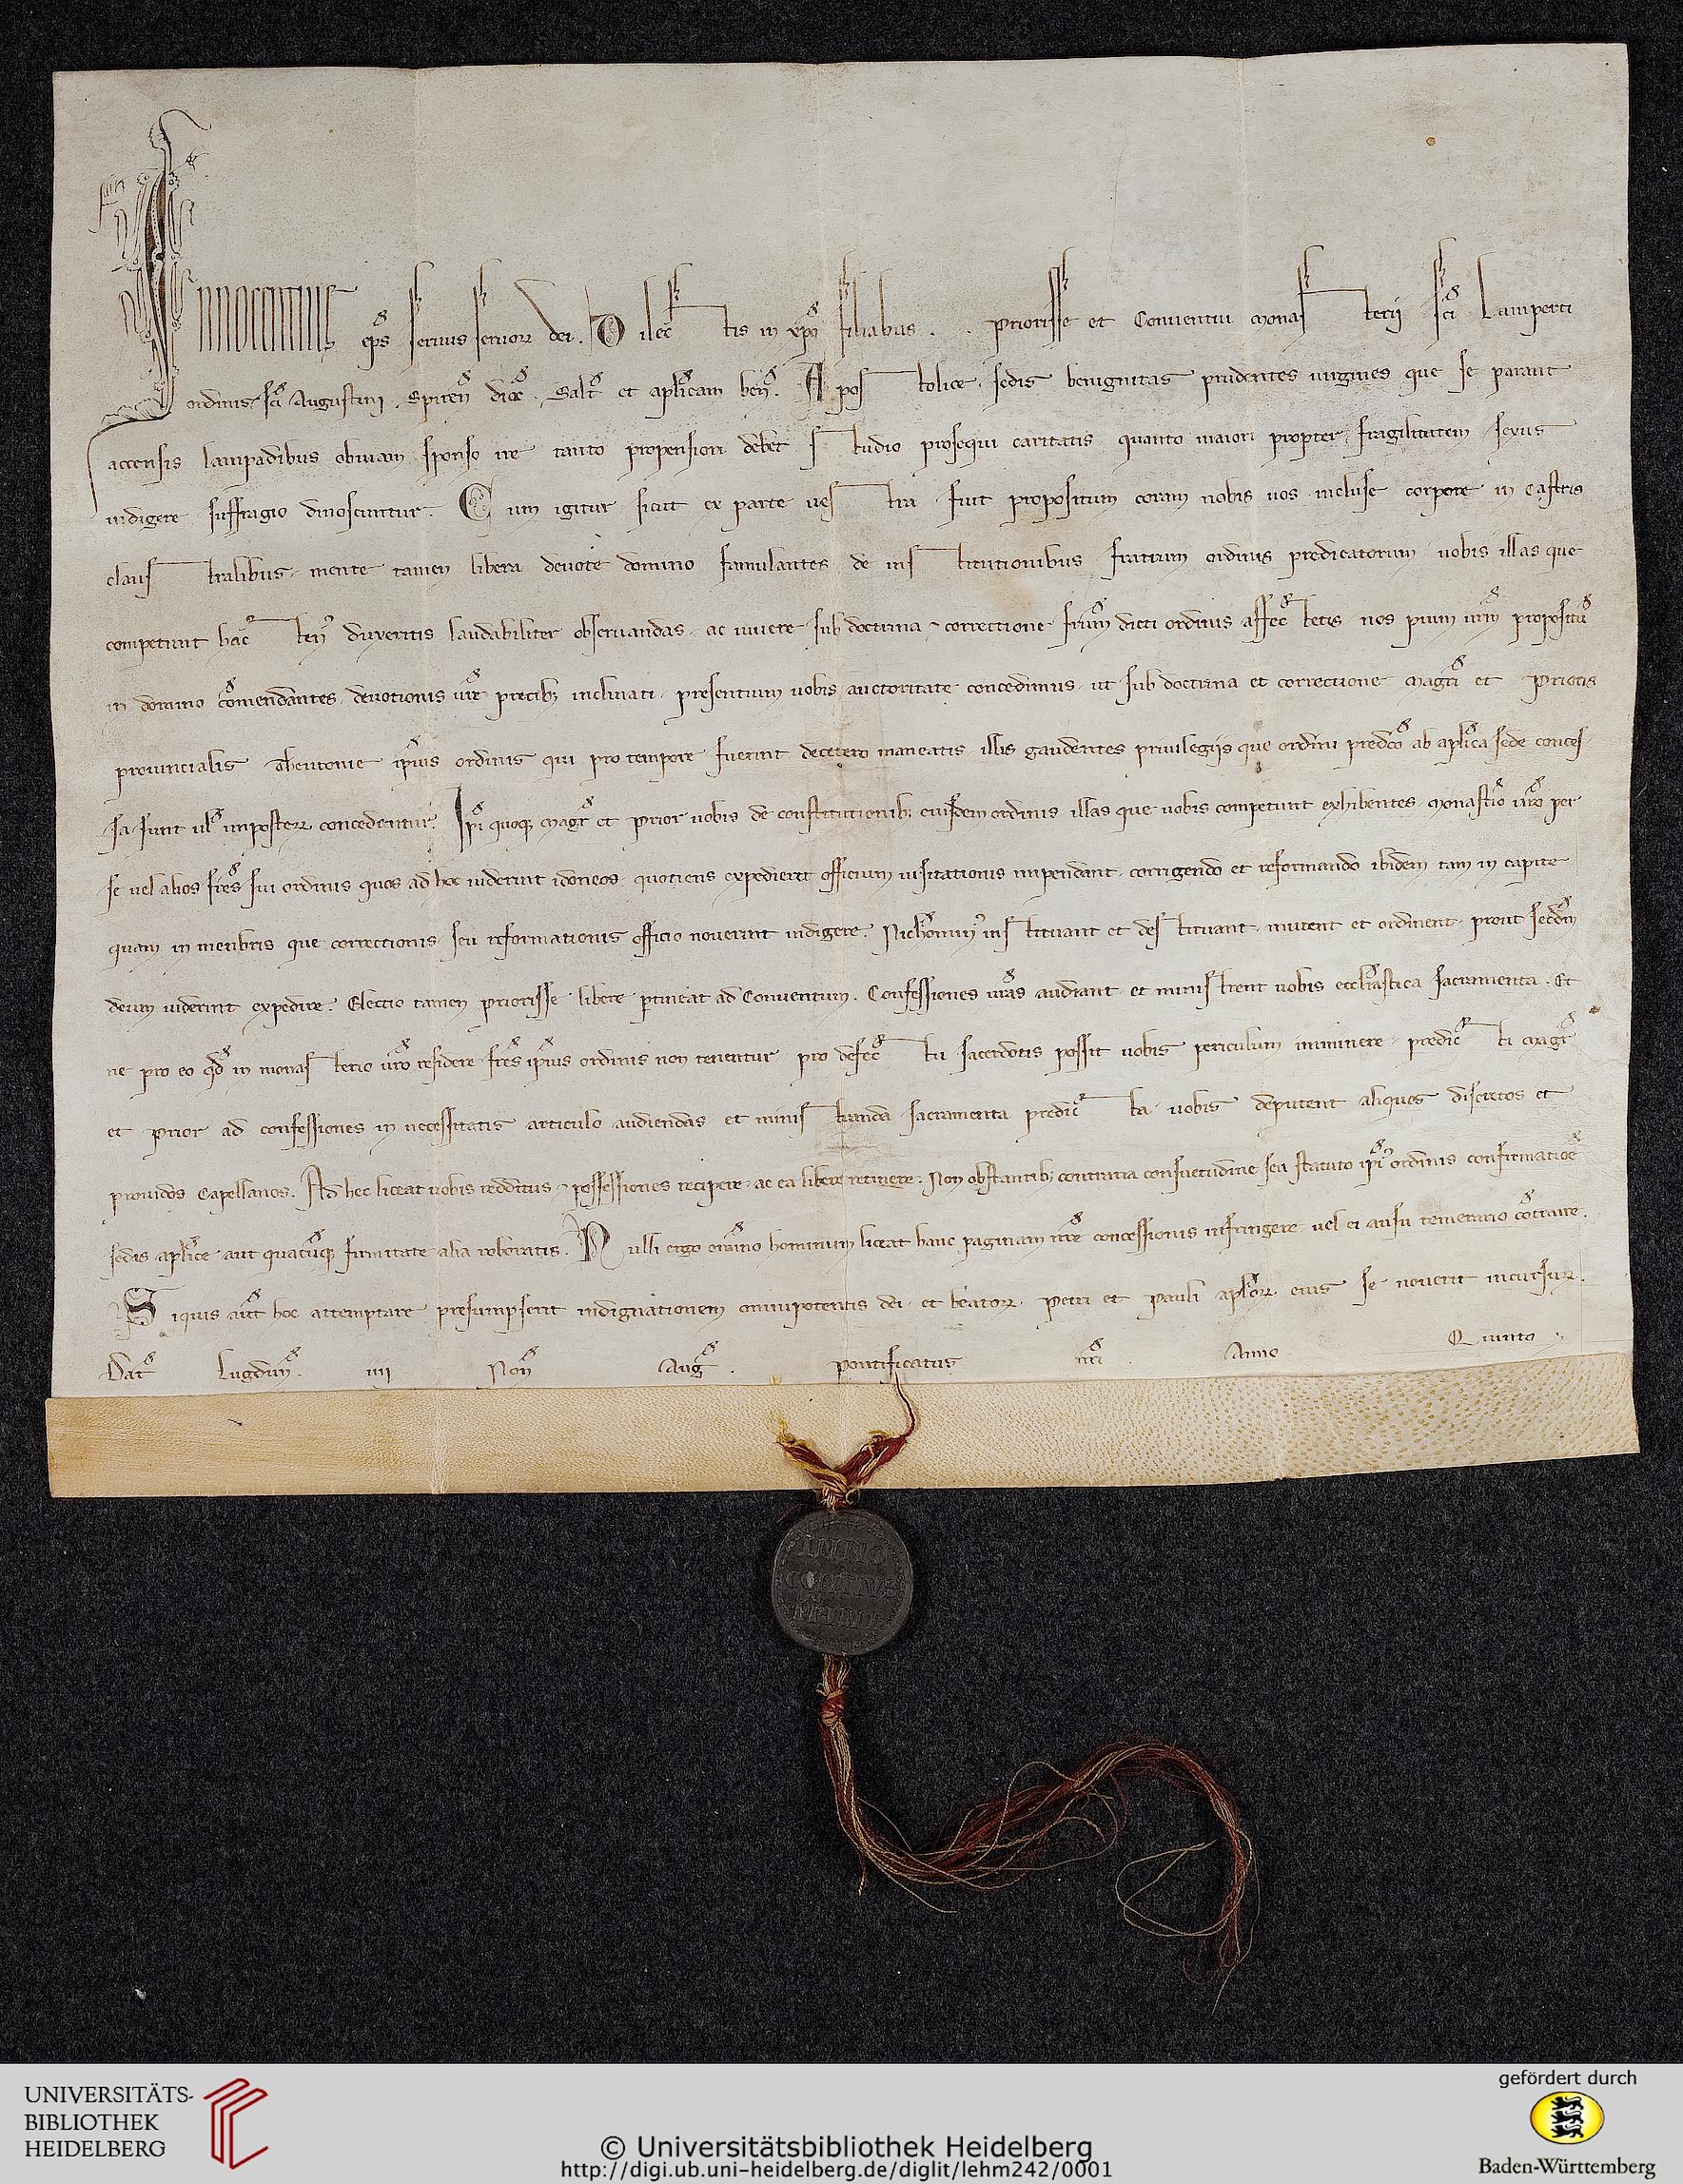 Innocentius ep̄s seruus seruoꝝ dei. Dilectis in xp̄o filiabus . . Priorisse et Conuentui Monasterij sc̄i Lamperti
ordinis sc̄i Augustini. Spireñ dioc̄. Salt̄ et aplīcam beñ. Apostolice sedis benignitas prudentes uirgines que se parant
accensis lampadibus obuiam sponso ire tanto propensiori debet studio prosequi caritatis quanto maiori propter fragilitatem sexus
indigere suffragio dinoscuntur. Cum igitur sicut ex parte uestra fuit propositum coram nobis uos incluse corpore in castris
claustralibus mente tamen libera deuote domino famulantes de institutionibus fratrum ordinis predicatorum uobis illas que
competunt hac̄teñ duxeritis laudabiliter obseruandas ac uiuere sub doctrina ⁊ correctione fr̄um dicti ordinis affectetis nos pium ur̄m propositū
in domino cōmendantes deuotionis ur̄e precibꝫ inclinati presentium uobis auctoritate concedimus ut sub doctrina et correctione Magr̄i et Prioris
prouincialis Theutonie ip̄ius ordinis qui pro tempore fuerint decetero maneatis illis gaudentes priuilegijs que ordini predc̄o ab aplīca sede conces-
sa sunt ul̄ imposteꝝ concedentur. Ip̄i quoqꝫ Magr̄ et Prior uobis de constitutionibꝫ eiusdem ordinis illas que uobis competunt exhibentes Monast̄io ur̄o per
se uel alios fr̄es sui ordinis quos ad hoc uiderint idoneos quotiens expedierit officium uisitationis impendant corrigendo et reformando ibidem tam in capite
quam in membris que correctionis seu reformationis officio nouerint indigere. Nichōmin᾽ instituant et destituant mutent et ordinent prout sec̄dm
deum uiderint expedire. Electio tamen Priorisse libere ꝑtineat ad Conuentum. Confessiones ur̄as audiant et ministrent uobis eccl̄iastica sacramenta. Et
ne pro eo qd̄ in monasterio ur̄o residere fr̄es ip̄ius ordinis non tenentur pro defectu sacerdotis possit uobis periculum imminere predicti Magr̄
et Prior ad confessiones in necessitatis articulo audiendas et ministranda sacramenta predicta uobis deputent aliquos discretos et
prouidos Capellanos. Ad hec liceat uobis redditus ⁊ possessiones recipere ac ea libere retinere. Non obstantibꝫ contraria consuetudine seu statuto ip̄i᾽ ordinis confirmatiōe
sedis aplīce aut quacūqꝫ firmitate alia roboratis. Nulli ergo om̄ino hominum liceat hanc paginam nr̄e concessionis infringere uel ei ausu temerario cōtraire.
Siquis aūt hoc attemptare presumpserit indignationem omnipotentis dei et beatoꝝ Petri et Pauli apl̄oꝝ eius se nouerit incursuꝝ.
Dat̄ Lugduñ. iiij Noñ Aug̃. Pontificatus nr̄i Anno Quinto.
INNO
CENTIVS
PP IIII
UNIVERSITÄTS-
BIBLIOTHEK
HEIDELBERG
© Universitätsbibliothek Heidelberg
http://digi.ub.uni-heidelberg.de/diglit/lehm242/0001
gefördert durch
Baden-Württemberg